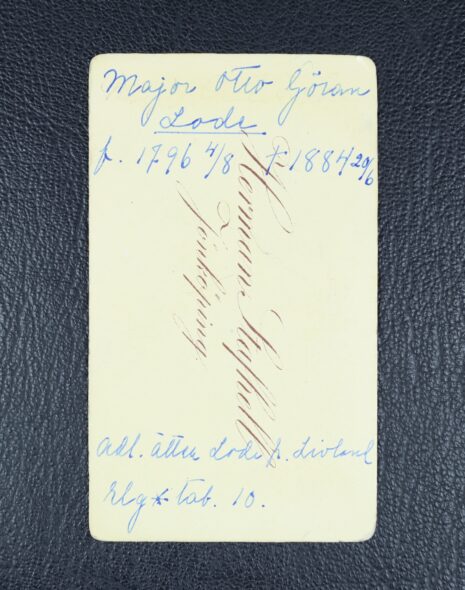 Major Otto Göran
Lode
f. 1796 4/8 † 1884 20/6
Herman
i
Jönköping.
adl. ätten Lode fr. Livland
Elg tab. 10.